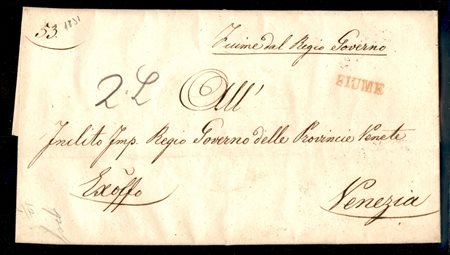 53 1831
Fiume dal Regio Governo
FIUME
2. L
All'
Inclito Imp. Regio Governo delle Provincie Venete
Exoffo
Venezia